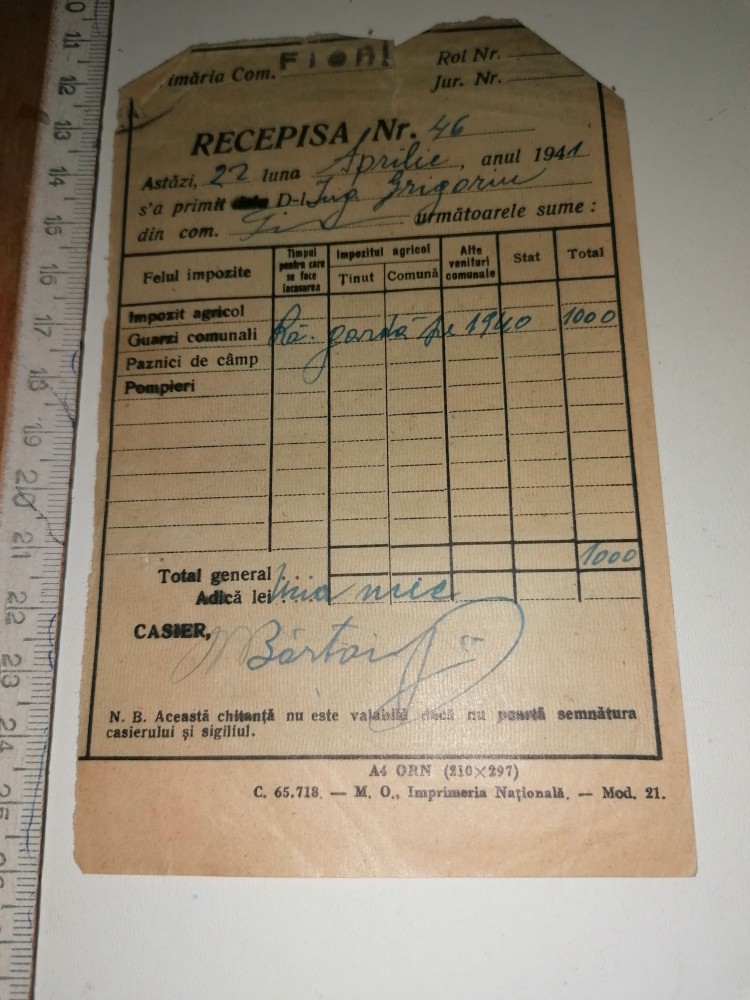 imăria Com. Fion
Rol Nr.
Jur. Nr.
RECEPISA Nr. 46
Astăzi, 22 luna Aprilie, anul 1941
s'a primit D-l Ing Grigoriu
din com. următoarele sume :
Felul impozite Timpul pentru care se face încasarea Impozitul agricol Ținut Comună Alte venituri comunale Stat Total
Impozit agricol
Guarzi comunali Ră. gardă pe 1940 1000
Paznici de câmp
Pompieri
1000
Total general
Adică lei Una mie
CASIER,
N. B. Această chitanță nu este valabilă dacă nu poartă semnătura
casierului și sigiliul.
A4 ORN (210×297)
C. 65.718. — M. O., Imprimeria Națională. — Mod. 21.
0 11 12 13 14 15 16 17 18 19 20 21 22 23 24 25